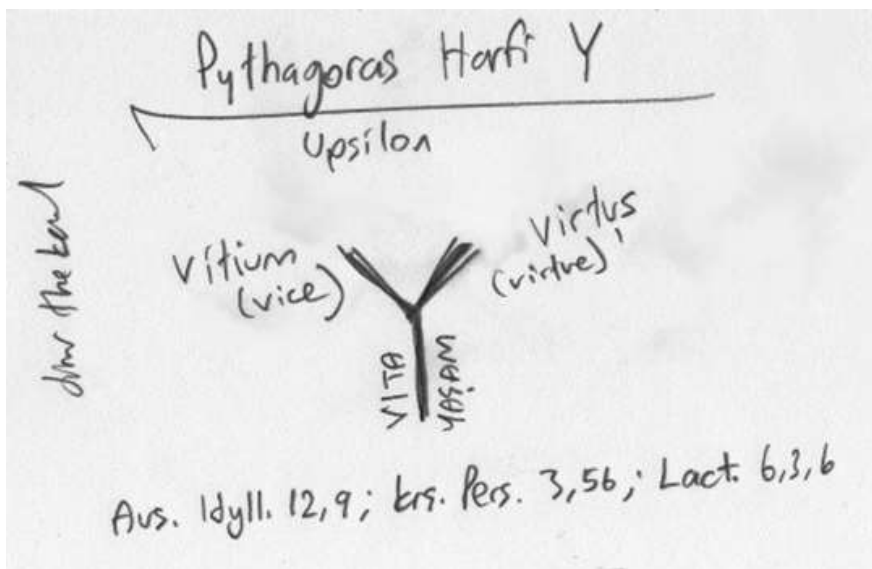 Pythagoras Harfi Y
Upsilon
Vitium
(vice)
Virtus
(virtue)
VITA
YAŞAM
Aus. Idyll. 12,9; krş. Pers. 3,56; Lact. 6,3,6